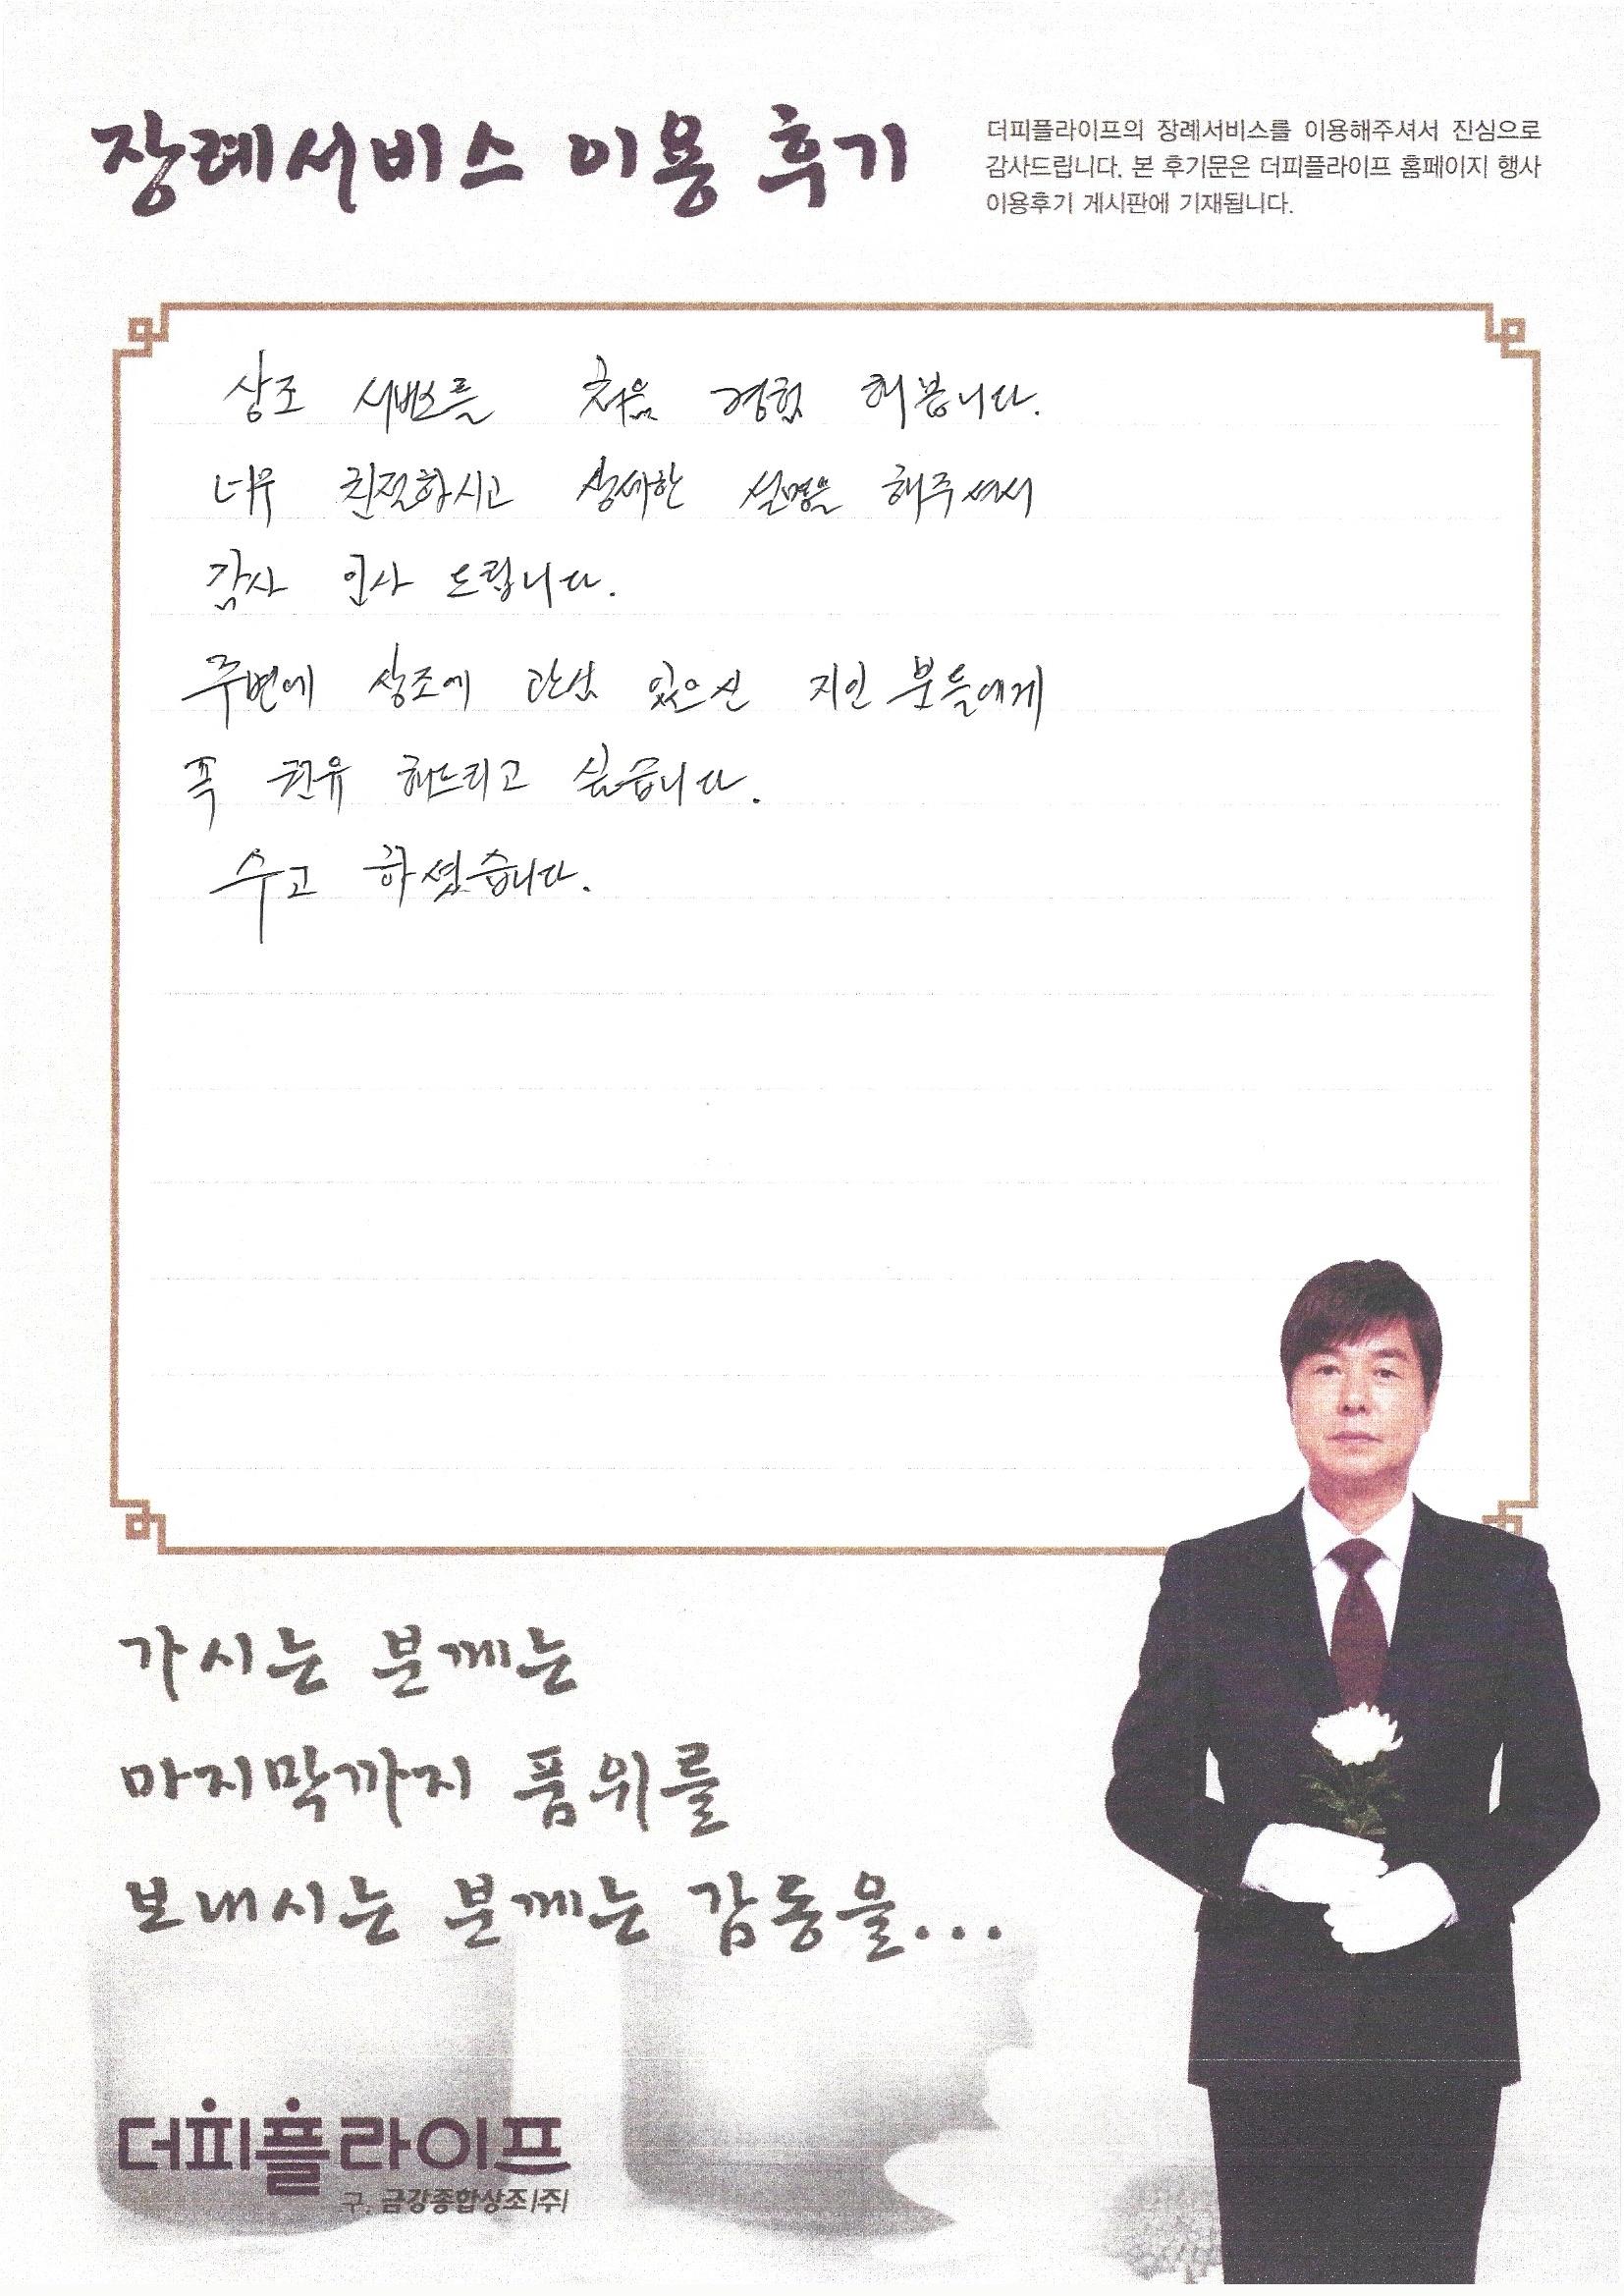 장례서비스 이용 후기
더피플라이프의 장례서비스를 이용해주셔서 진심으로
감사드립니다. 본 후기문은 더피플라이프 홈페이지 행사
이용후기 게시판에 기재됩니다.
상조 서비스를 처음 경험 해봅니다.
너무 친절하시고 상세한 설명을 해주셔서
감사 인사 드립니다.
주변에 상조에 관심 있으신 지인 분들에게
꼭 권유 해드리고 싶습니다.
수고 하셨습니다.
가시는 분께는
마지막까지 품위를
보내시는 분께는 감동을...
더피플라이프
구. 금강종합상조(주)